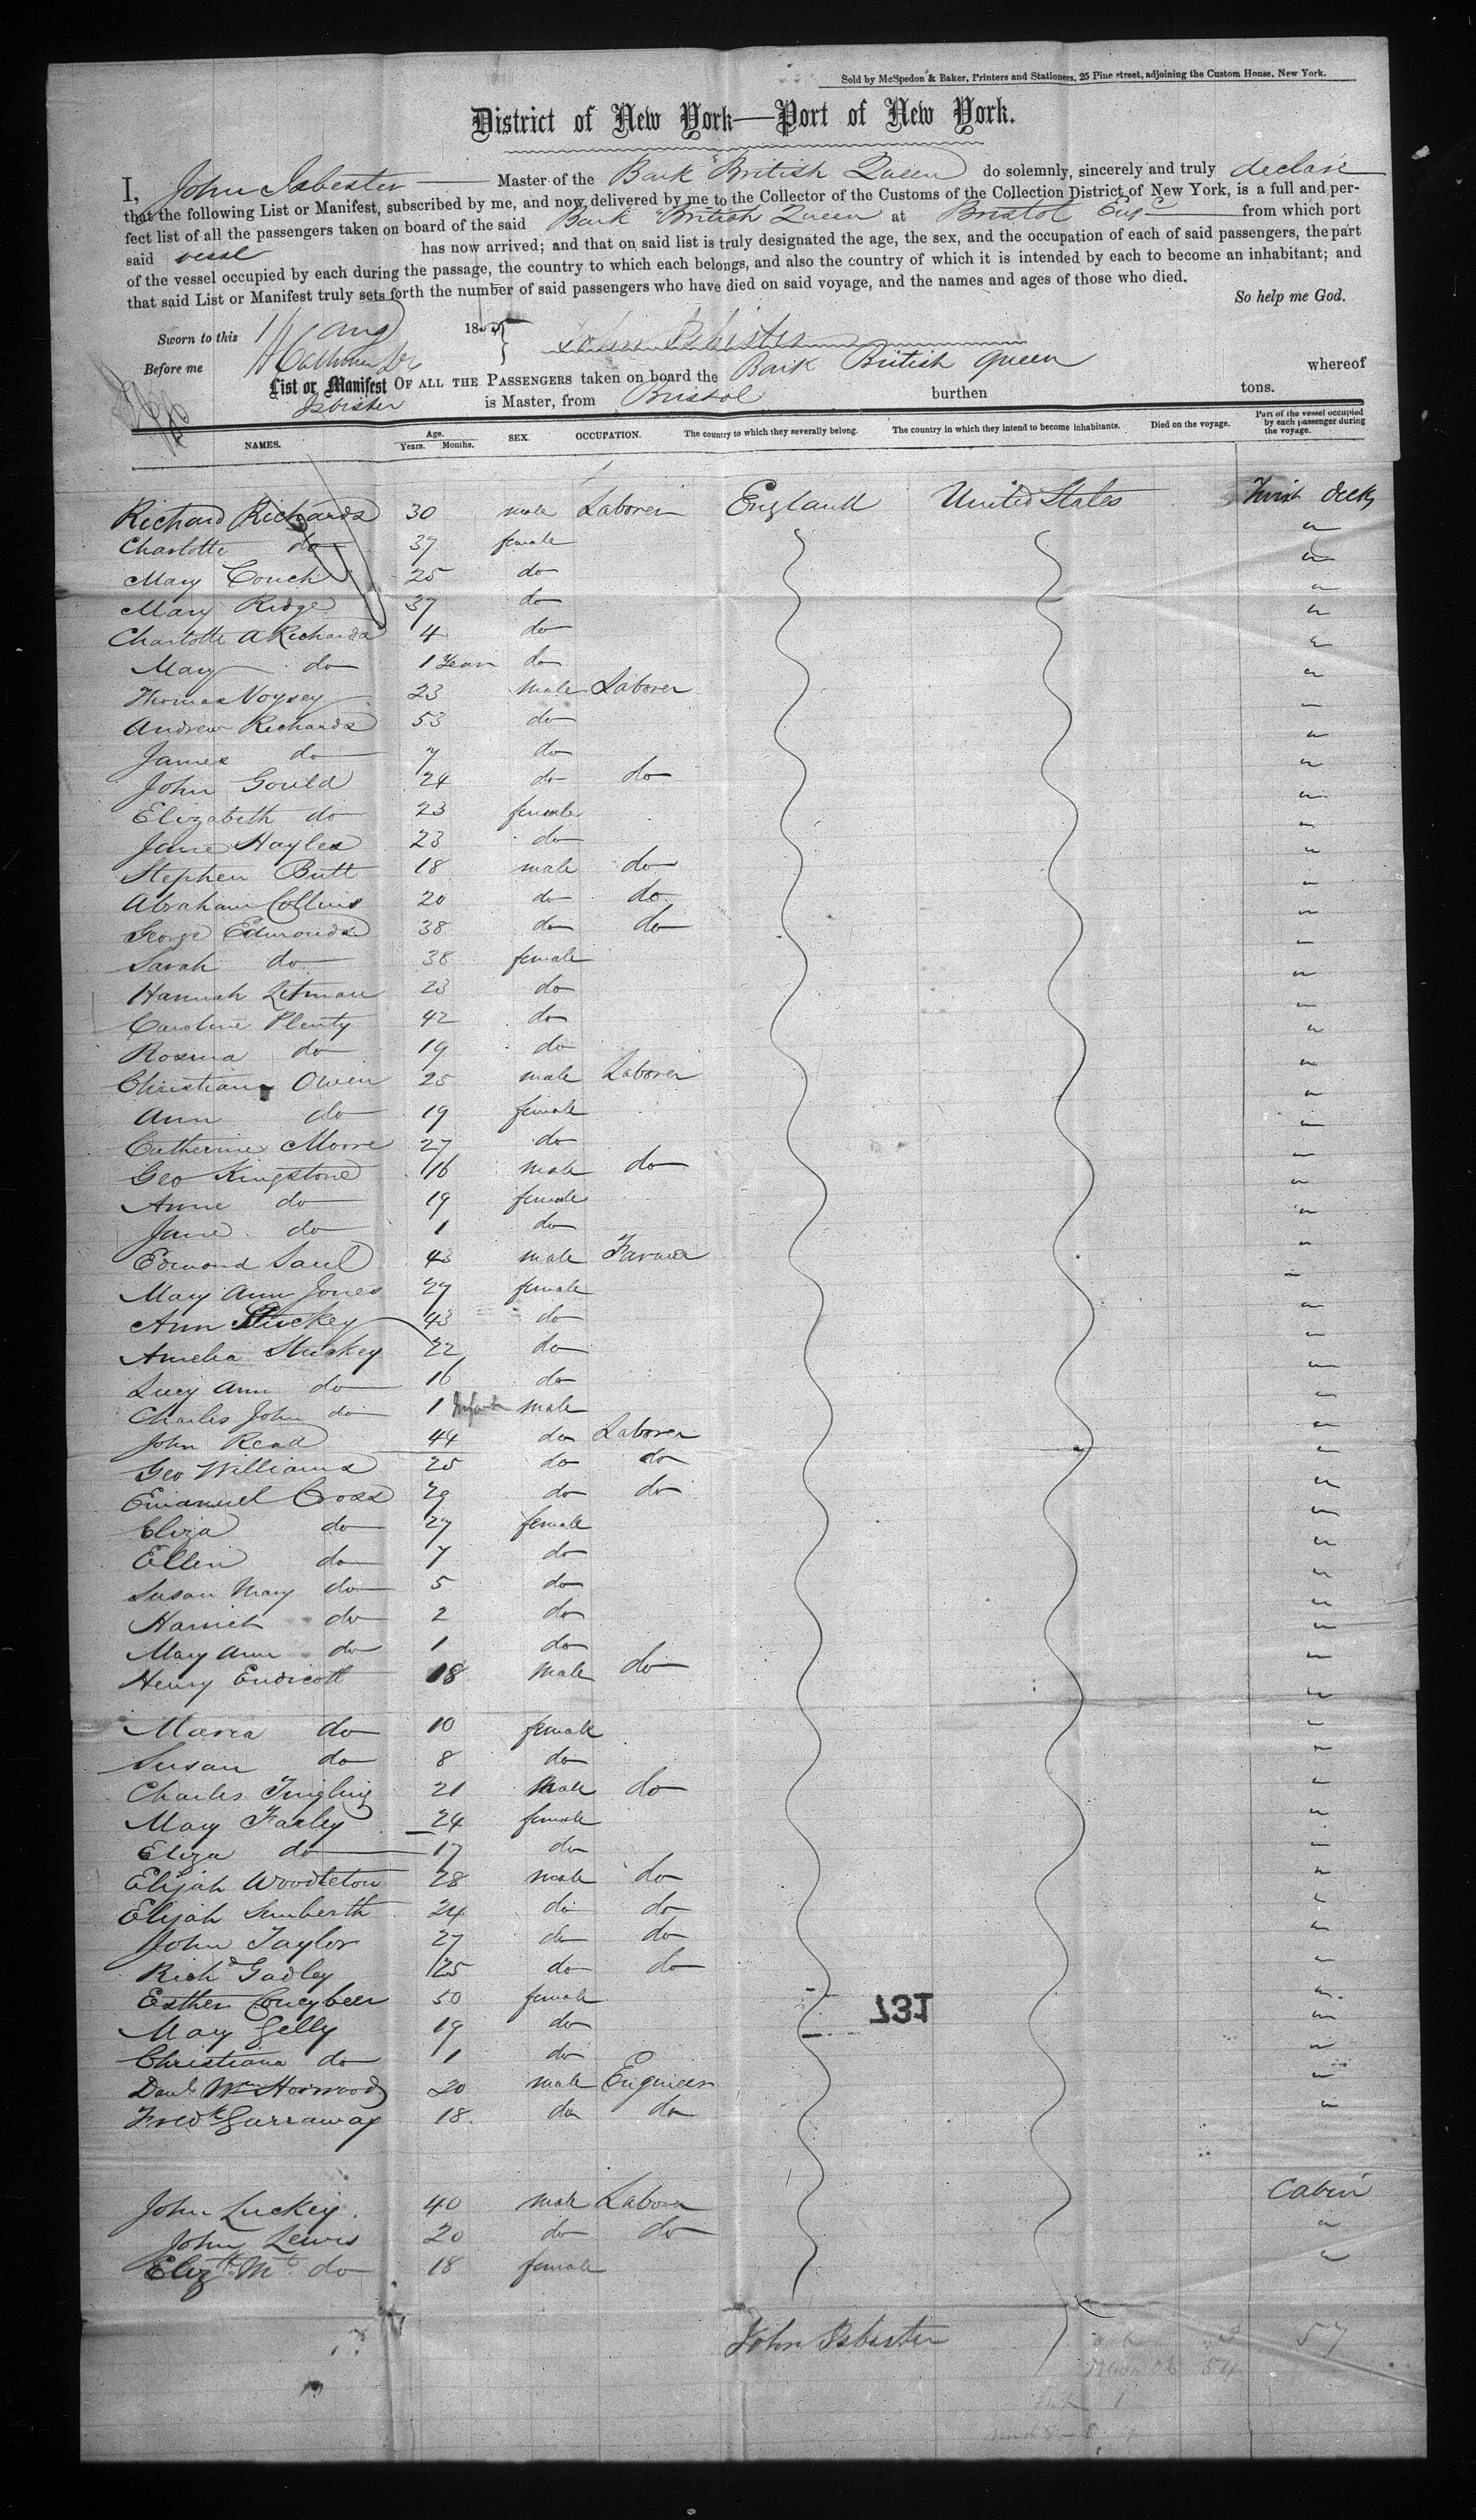 Sold by McSpedon & Baker, Printers and Stationers, 25 Pine street, adjoining the Custom House, New York.
District of New York—Port of New York.
I, John Isbester Master of the Bark British Queen do solemnly, sincerely and truly declare
that the following List or Manifest, subscribed by me, and now delivered by me to the Collector of the Customs of the Collection District of New York, is a full and per-
fect list of all the passengers taken on board of the said Bark British Queen at Bristol Eng from which port
said vessl has now arrived; and that on said list is truly designated the age, the sex, and the occupation of each of said passengers, the part
of the vessel occupied by each during the passage, the country to which each belongs, and also the country of which it is intended by each to become an inhabitant; and
that said List or Manifest truly sets forth the number of said passengers who have died on said voyage, and the names and ages of those who died.
So help me God.
Sworn to this Aug 18 John Isbister
Before me
List or Manifest OF ALL THE PASSENGERS taken on board the Bark British Queen whereof
Isbister is Master, from Bristol burthen tons.
NAMES. Age. Years. Months. SEX. OCCUPATION. The country to which they severally belong. The country in which they intend to become inhabitants. Died on the voyage. Part of the vessel occupied by each passenger during the voyage.
Richard Richards 30 male Laborer England United States Twixt decks
Charlotte do 37 female "
Mary Couch 25 do "
Mary Ridge 37 do "
Charlotte A Richards 4 do "
Mary do 1 Year do "
Thomas Voysey 23 male Laborer "
Andrew Richards 53 do "
James do 7 do "
John Gould 24 do do "
Elizabeth do 23 female "
Jane Hayles 23 do "
Stephen Butt 18 male do "
Abraham Collins 20 do do "
George Edmonds 38 do do "
Sarah do 38 female "
Hannah Litman 23 do "
Caroline Plenty 42 do "
Rosina do 19 do "
Christian Owen 25 male Laborer "
Ann do 19 female "
Catherine Moore 27 do "
Geo Kingstone 16 male do "
Anne do 19 female "
Jane do 1 do "
Edmond Saul 43 male Farmer "
Mary Ann Jones 27 female "
Ann Stuckey 43 do "
Amelia Stuckey 22 do "
Lucy Ann do 16 do "
Charles John do 1 Infant male "
John Read 44 do Laborer "
Geo Williams 25 do do "
Emanuel Cross 29 do do "
Eliza do 27 female "
Ellen do 7 do "
Susan Mary do 5 do "
Harriet do 2 do "
Mary Ann do 1 do "
Henry Endicott 18 male do "
Maria do 10 female "
Susan do 8 do "
Charles 21 male do "
Mary Farley 24 female "
Eliza do 17 do "
Elijah Woodleton 28 male do "
Elijah 24 do do "
John Taylor 27 do do "
Richd Gadley 25 do do "
Esther Coneybeer 50 female "
Mary Gelly 19 do "
Christiana do 1 do "
Danl Wm Horwood 20 male Engineer "
Fredk Garraway 18 do do "
731
John Luckey 40 male Laborer Cabin
John Lewis 20 do do "
Elizth Mt do 18 female "
John Isbester
57
54
1